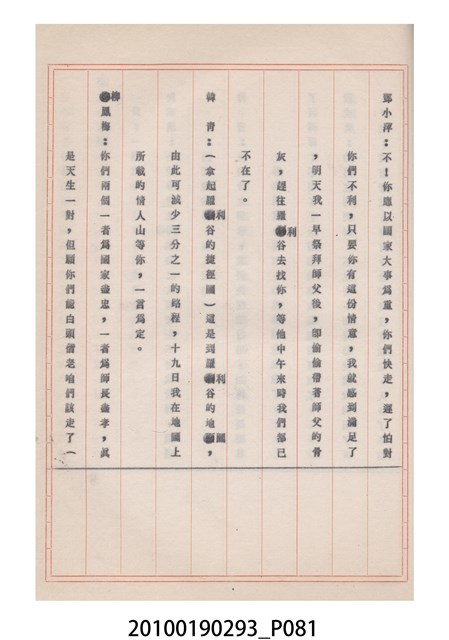 鄧小萍：不！你應以國家大事為重，你們快走，遲了怕對
你們不利，只要你有這份情意，我就感到滿足了
，明天我一早祭拜師父後，即偷偷帶著師父的骨
灰，趕往羅利谷去找你，等他中午來時我們都已
不在了。
韓　青：（拿起羅利谷的捷徑圖）這是到羅利谷的地圖，
由此可減少三分之一的路程，十九日我在地圖上
所載的情人山等你，一言為定。
柳鳳梅：你們兩個一者為國家盡忠，一者為師長盡孝，真
是天生一對，但願你們能白頭偕老咱們該走了（
20100190293_P081